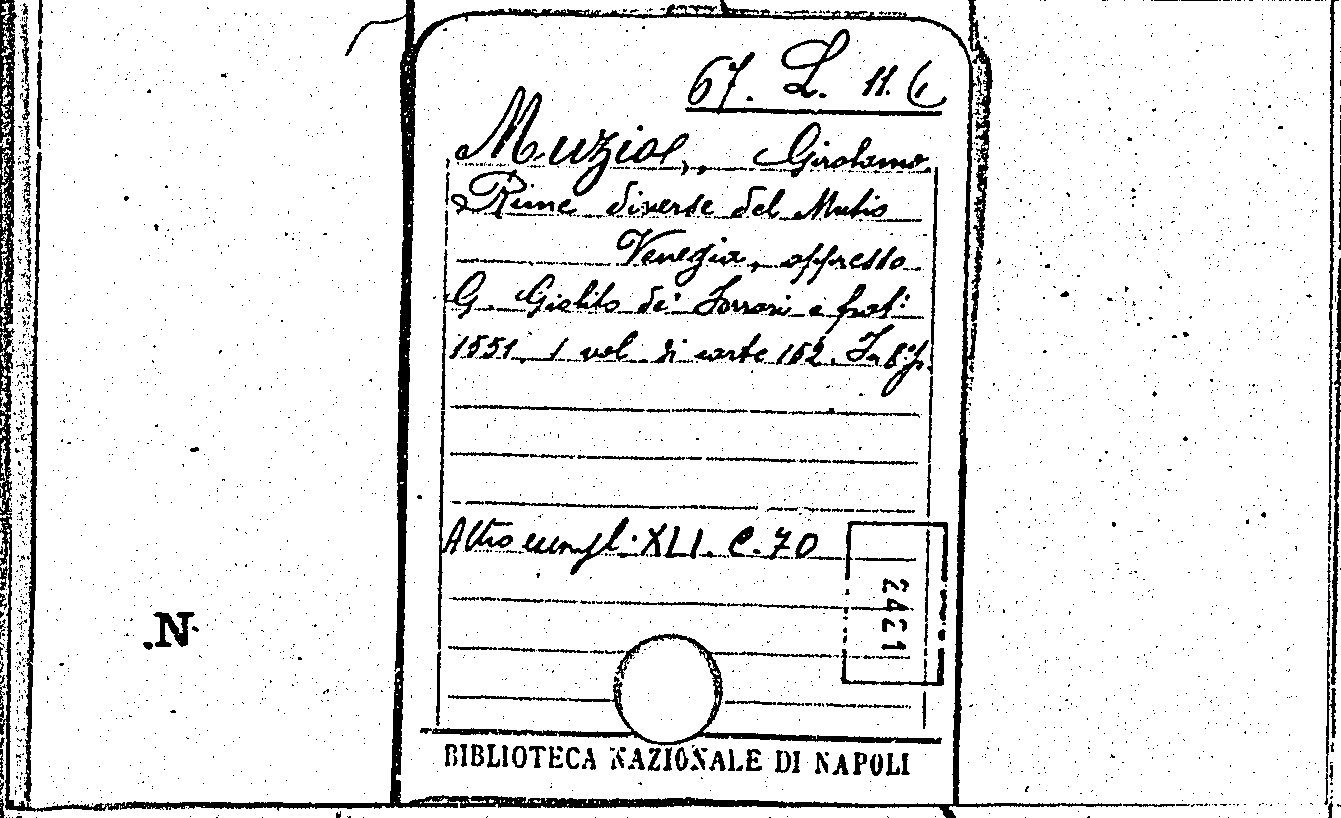 67. L. 11. 6
Muzio, Girolamo
Rime diverse del Mutio
Venezia, appresso
G. Giolito de' Ferrari e frat:
1551. 1 vol. di carte 152. In 8º p.
Altro esempl. XLI. C. 70
2421
.N.
BIBLIOTECA NAZIONALE DI NAPOLI